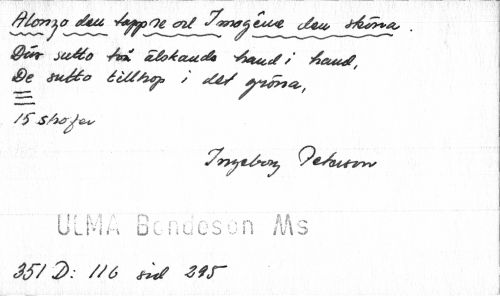 Alonzo den tappre och Imogéne den sköna.
Där sutto två älskande hand i hand,
De sutto tillhop i det gröna,
15 strofer
Ingeborg Peterson
ULMA Bondeson Ms
351 D: 116 sid 295